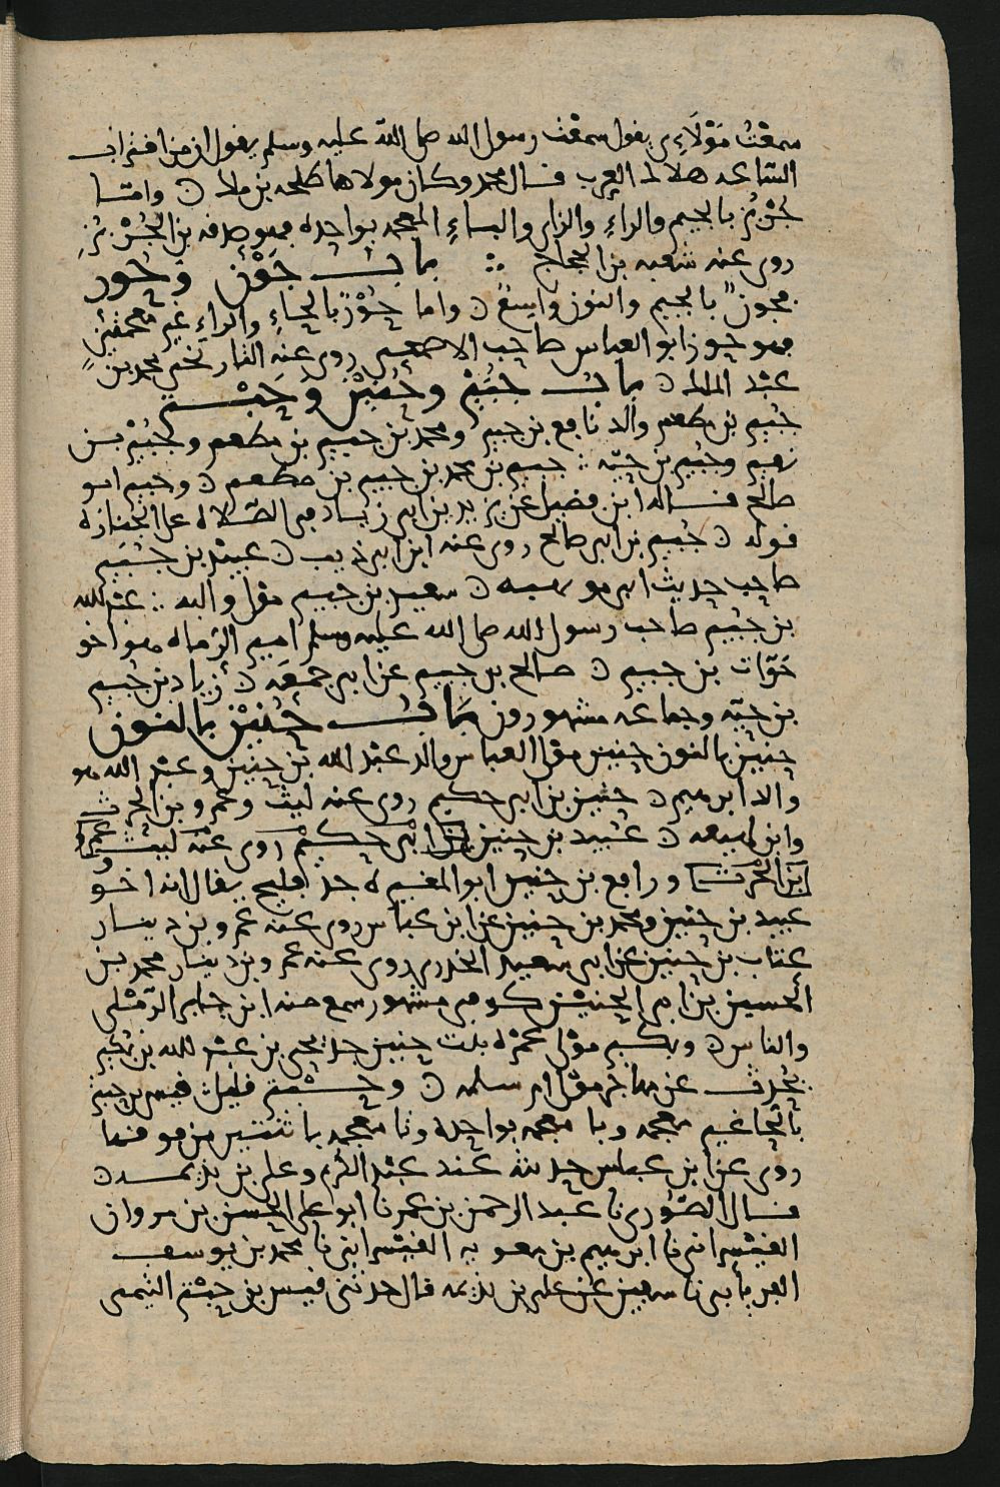 سمعت مولاي يقول سمعت رسول الله صلى الله عليه وسلم يقول ان من اقتراب
الساعه هلاك العرب قال محمد وكان مولاها طلحه بن ملك ن واما
بالجيم والراء والزاي والباء المعجمه بواحده فهو صدفه بن
روى عنه شعبه بن الحجاج ∴ باب جَوْن وحَور
فجون بالجيم والنون واسع ن واما حور بالحاء والراء غير معجمتين
فهو حور ابو العباس صاحب الاصمعي روى عنه محمد بن
عبد الملك ن باب جبير وحنين وحبتر
جبير بن مطعم والد نافع بن جبير ومحمد بن جبير بن مطعم وجبير بن
نفير وجبير بن حيه ∴ جبير بن محمد بن جبير بن مطعم ن وجبير ابو
صالح قاله ابن فضيل عن يزيد بن ابي زياد في الصلاه على الجنازه
قوله ن جبير بن ابي صالح روى عنه ابن ابي ذيب ن عبيد بن جبير
صاحب حديث ابي مويهبه ن سعيد بن جبير مولى والبه ∴ عبد الله
بن جبير صاحب رسول الله صلى الله عليه وسلم امير الرماه هو اخو
خوات بن جبير ن صالح بن جبير عن ابي جمعه ن زياد بن جبير
بن حيه وجماعه مشهورون باب حنين بالنون
حنين بالنون حنين مولى العباس والد عبد الله بن حنين وعبد الله هو
والد ابرهيم ن حنين بن ابي حكيم روى عنه ليث وعمرو بن الحرث
وابن لهيعه ن عبيد بن حنين بن ابي حكيم روى عنه ليث وعمرو
ابن الحرث ورافع بن حنين ابو المغيره جد فليح يقال انه اخو
عبيد بن حنين ومحمد بن حنين عن ابن عباس روى عنه عمرو بن دينار
عتاب بن حنين عن ابي سعيد الخدري روى عنه عمرو بن دينار محمد بن
الحسين بن ابي الحنين كوفي مشهور سمع منه ابن جابر الرملي
والناس ن وبكير مولى عمره بنت حنين جد يحيى بن عبد الله بن بكير
يحدث عن مهاجر مولى ام سلمه ن وحبتر فليل قيس بن حبتر
بالحا غير معجمه وبا معجمه بواحده وتا معجمه باثنتين من فوقها
روى عن ابن عباس حديثه عند عبد الكريم وعلي بن بذيمه ن
قال الصوري نا عبد الرحمن بن عمر نا ابو علي الحسن بن مروان
القيسراني نا ابرهيم بن معويه القيسراني نا محمد بن يوسف
الفريابي نا سفين عن علي بن بذيمه قال حدثني قيس بن حبتر التميمي